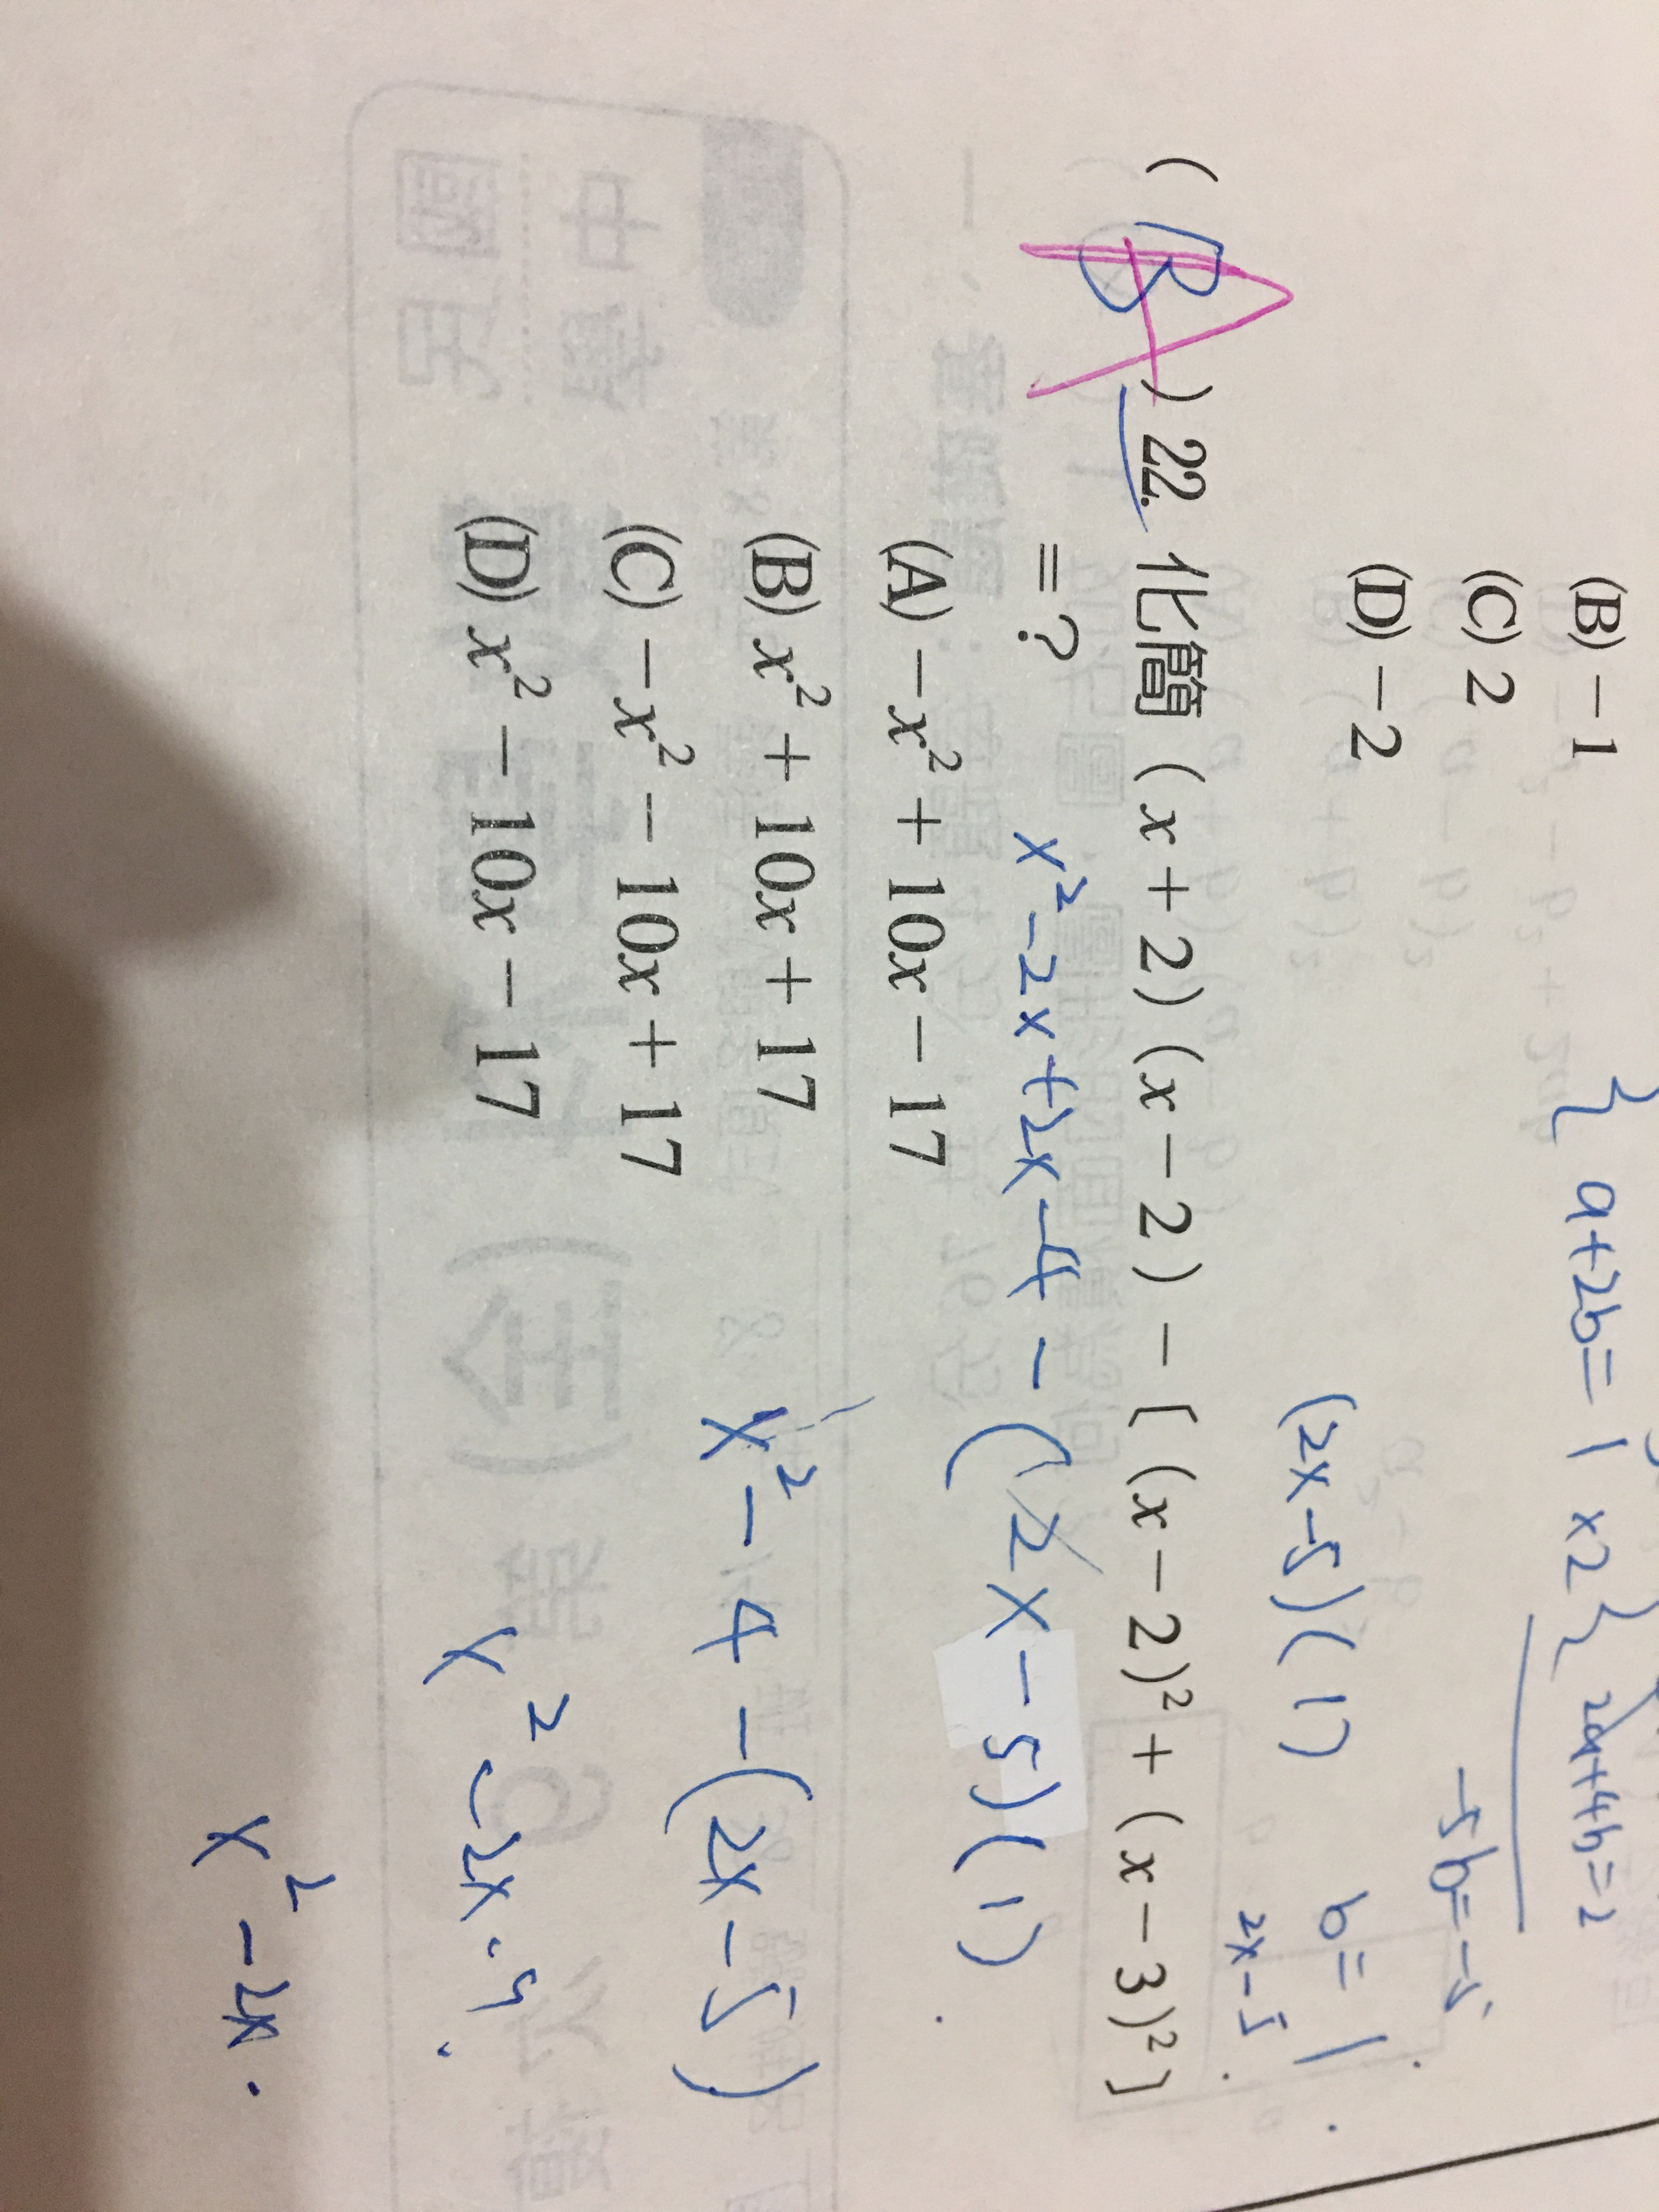 (B) －1
(C) 2
(D) －2
{ a+2b=1 x2 } 2a+4b=2
-5b=-5
b=1
(2x-5)(1)
2x-5
( B A ) 22. 化簡 (x＋2)(x－2)－[(x－2)²＋(x－3)²]
＝？
x²-2x+2x-4-(2x-5)(1)
(A) －x²＋10x－17
(B) x²＋10x＋17
x²-4-(2x-5)
(C) －x²－10x＋17
(D) x²－10x－17
x²-2x
x²-2x